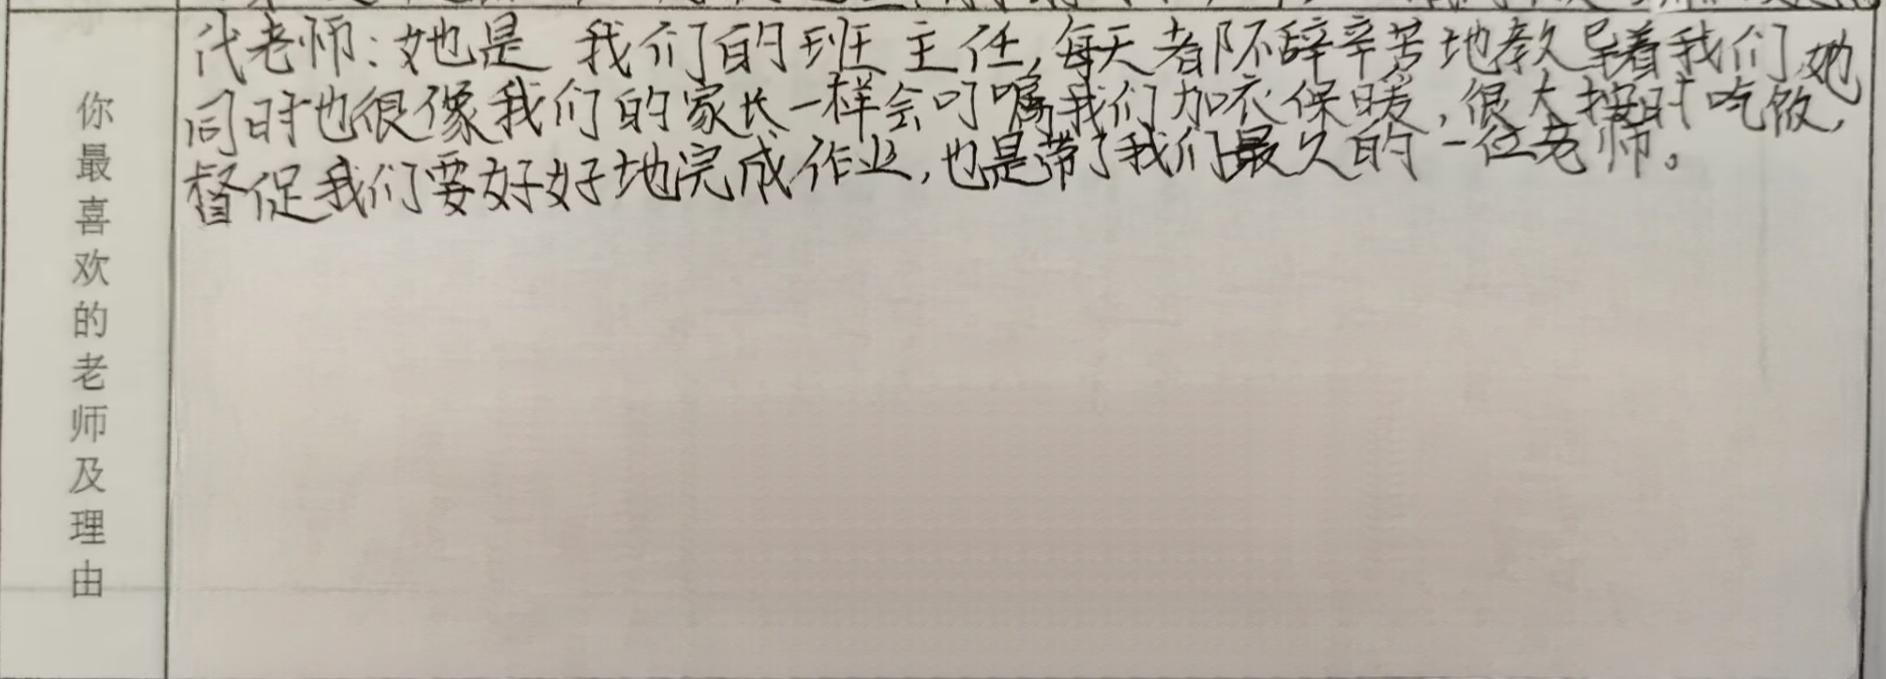 你最喜欢的老师及理由
代老师:她是 我们的班主任,每天都不辞辛苦地教导着我们,她
同时也很像我们的家长一样会叮嘱我们加衣保暖,很大按时吃饭,
督促我们要好好地完成作业,也是带了我们最久的一位老师。